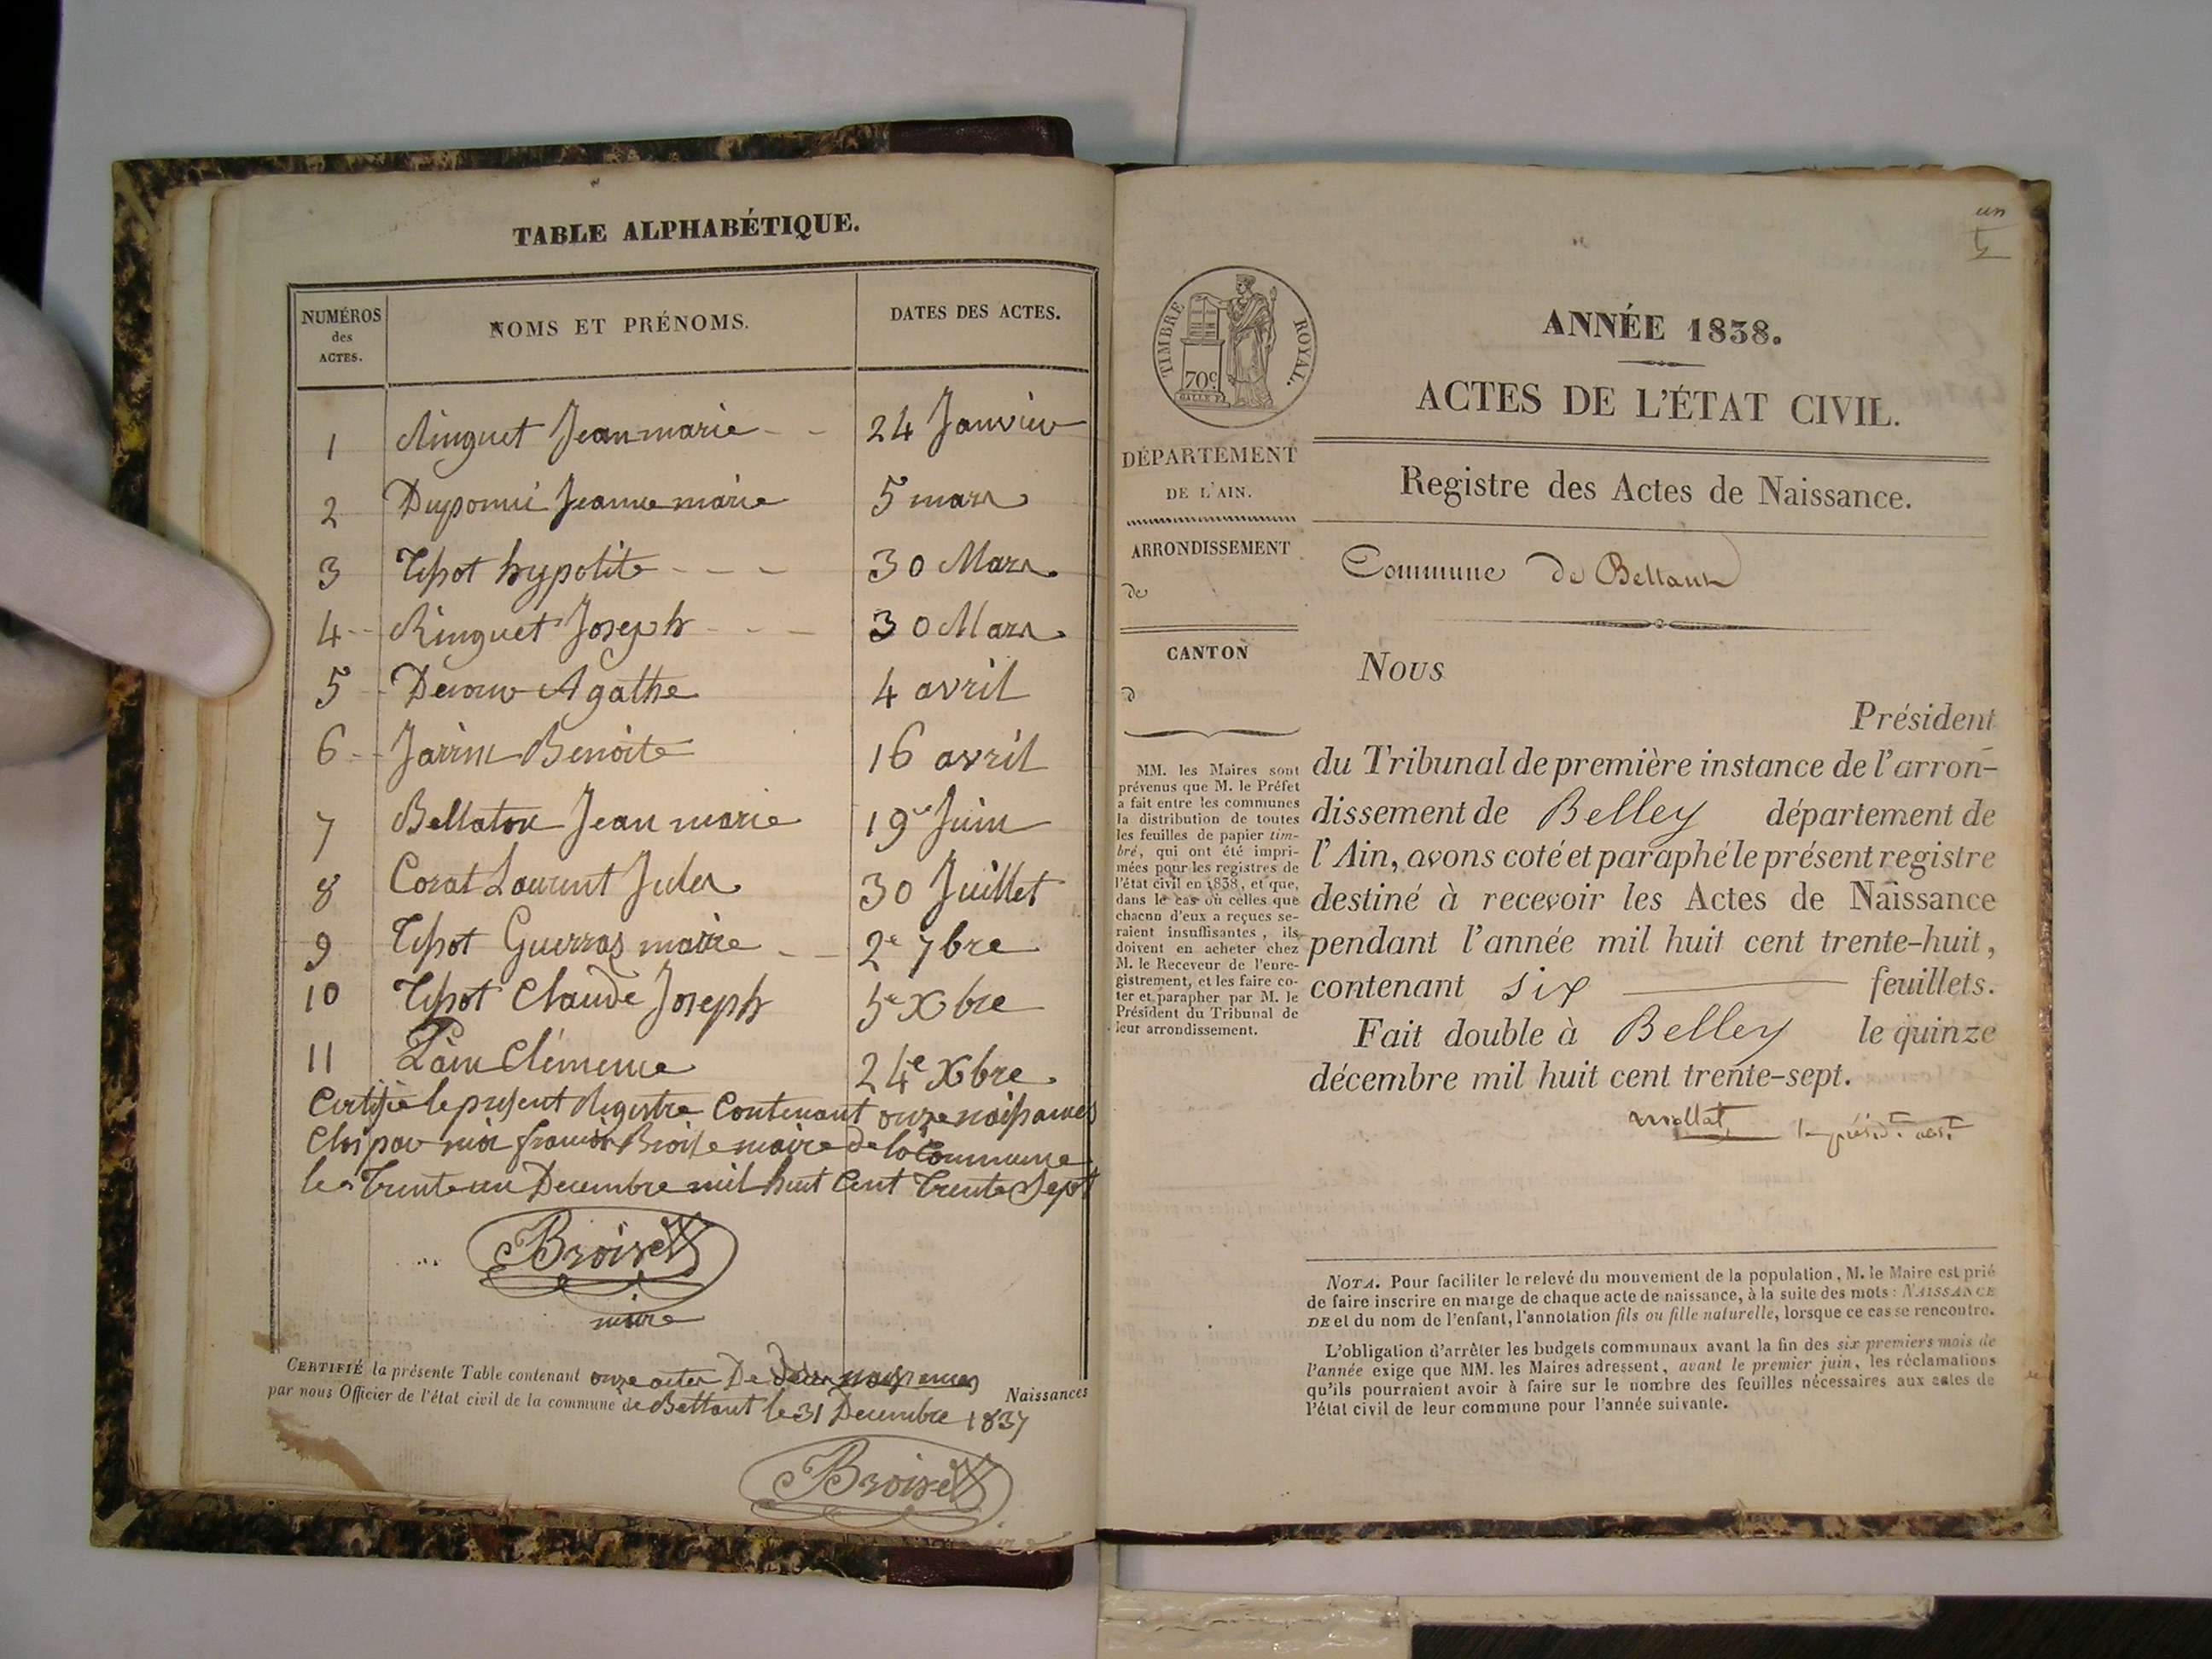 TABLE ALPHABÉTIQUE.
NUMÉROS des ACTES.
NOMS ET PRÉNOMS.
DATES DES ACTES.
1 Ringuet Jean marie 24 Janvier
2 Jeanne marie 5 mars
3 Tissot hypolite 30 Mars
4 Ringuet Joseph 30 Mars
5 Agathe 4 avril
6 Benoite 16 avril
7 Bellaton Jean marie 19e Juin
8 Corat Laurent Jules 30 Juillet
9 Tissot marie 2e 7bre
10 Tissot Claude Joseph 5e Xbre
11 Clémence 24e Xbre
Certifié le présent Registre Contenant onze naissances
Clos par moi maire de la Commune
le Trente un Decembre mil huit Cent Trente Sept
Broiset
maire
CERTIFIÉ la présente Table contenant onze actes De naissances
Naissances
par nous Officier de l'état civil de la commune de Bettant le 31 Decembre 1837
Broiset
un
TIMBRE ROYAL.
70c.
ANNÉE 1838.
ACTES DE L'ÉTAT CIVIL.
DÉPARTEMENT
DE L'AIN.
Registre des Actes de Naissance.
ARRONDISSEMENT
de
Commune de Bettant
CANTON
d
MM. les Maires sont
prévenus que M. le Préfet
a fait entre les communes
la distribution de toutes
les feuilles de papier tim-
bré, qui ont été impri-
mées pour les registres de
l'état civil en 1838, et que,
dans le cas où celles que
chacun d'eux a reçues se-
raient insuffisantes, ils
doivent en acheter chez
M. le Receveur de l'enre-
gistrement, et les faire co-
ter et parapher par M. le
Président du Tribunal de
leur arrondissement.
Nous
Président
du Tribunal de première instance de l'arron-
dissement de Belley département de
l'Ain, avons coté et paraphé le présent registre
destiné à recevoir les Actes de Naissance
pendant l'année mil huit cent trente-huit,
contenant six feuillets.
Fait double à Belley le quinze
décembre mil huit cent trente-sept.
Mollat
NOTA. Pour faciliter le relevé du mouvement de la population, M. le Maire est prié
de faire inscrire en marge de chaque acte de naissance, à la suite des mots : NAISSANCE
DE et du nom de l'enfant, l'annotation fils ou fille naturelle, lorsque ce cas se rencontre.
L'obligation d'arrêter les budgets communaux avant la fin des six premiers mois de
l'année exige que MM. les Maires adressent, avant le premier juin, les réclamations
qu'ils pourraient avoir à faire sur le nombre des feuilles nécessaires aux actes de
l'état civil de leur commune pour l'année suivante.